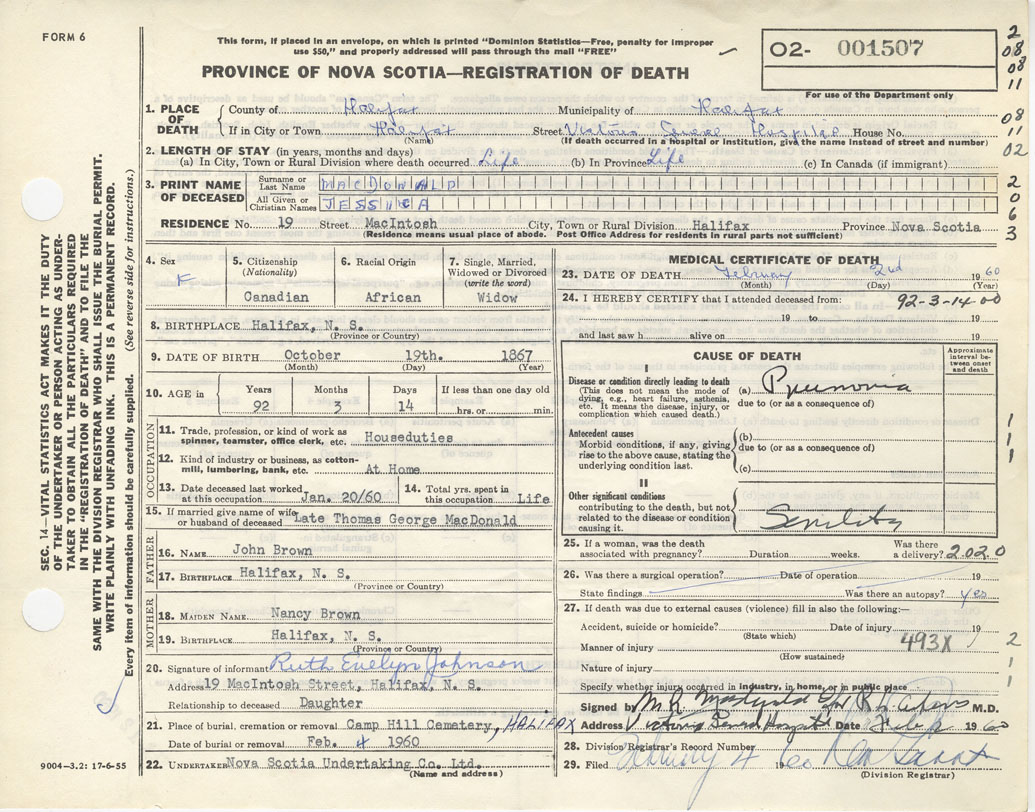 FORM 6
This form, if placed in an envelope, on which is printed "Dominion Statistics—Free, penalty for improper
use $50," and properly addressed will pass through the mail "FREE"
PROVINCE OF NOVA SCOTIA—REGISTRATION OF DEATH
02- 001507
For use of the Department only
2
08
08
11
08
11
02
2
0
6
3
1. PLACE OF DEATH
County of Halifax Municipality of Halifax
If in City or Town Halifax Street Victoria General Hospital House No.
(Name) (If death occurred in a hospital or institution, give the name instead of street and number)
2. LENGTH OF STAY (in years, months and days)
(a) In City, Town or Rural Division where death occurred Life (b) In Province Life (c) In Canada (if immigrant)
3. PRINT NAME OF DECEASED
Surname or Last Name MACDONALD
All Given or Christian Names JESSICA
RESIDENCE No. 19 Street MacIntosh City, Town or Rural Division Halifax Province Nova Scotia
(Residence means usual place of abode. Post Office Address for residents in rural parts not sufficient)
4. Sex F
5. Citizenship (Nationality) Canadian
6. Racial Origin African
7. Single, Married, Widowed or Divorced (write the word) Widow
8. BIRTHPLACE Halifax, N. S.
(Province or Country)
9. DATE OF BIRTH October 19th. 1867
(Month) (Day) (Year)
10. AGE in Years 92 Months 3 Days 14 If less than one day old hrs. or min.
OCCUPATION
11. Trade, profession or kind of work as spinner, teamster, office clerk, etc. Houseduties
12. Kind of industry or business, as cotton-mill, lumbering, bank, etc. At Home
13. Date deceased last worked at this occupation Jan. 20/60
14. Total yrs. spent in this occupation Life
15. If married give name of wife or husband of deceased Late Thomas George MacDonald
FATHER
16. NAME John Brown
17. BIRTHPLACE Halifax, N. S.
(Province or Country)
MOTHER
18. MAIDEN NAME Nancy Brown
19. BIRTHPLACE Halifax, N. S.
(Province or Country)
20. Signature of informant Ruth Evelyn Johnson
Address 19 MacIntosh Street, Halifax, N. S.
Relationship to deceased Daughter
21. Place of burial, cremation or removal Camp Hill Cemetery, HALIFAX
Date of burial or removal Feb. 4 1960
22. UNDERTAKER Nova Scotia Undertaking Co. Ltd.
(Name and address)
MEDICAL CERTIFICATE OF DEATH
23. DATE OF DEATH February 2nd 1960
(Month) (Day) (Year)
24. I HEREBY CERTIFY that I attended deceased from: 92-3-14-00
19 to 19
and last saw h alive on 19
CAUSE OF DEATH
Approximate interval between onset and death
I
Disease or condition directly leading to death
(This does not mean the mode of dying, e.g., heart failure, asthenia, etc. It means the disease, injury, or complication which caused death.)
(a) Pneumonia
due to (or as a consequence of)
Antecedent causes
Morbid conditions, if any, giving rise to the above cause, stating the underlying condition last.
(b)
due to (or as a consequence of)
(c)
II
Other significant conditions
contributing to the death, but not related to the disease or condition causing it.
Senility
1
1
1
25. If a woman, was the death associated with pregnancy? Duration weeks. Was there a delivery? 2.02.0
26. Was there a surgical operation? Date of operation 19
State findings Was there an autopsy? yes
27. If death was due to external causes (violence) fill in also the following:—
Accident, suicide or homicide? Date of injury 19
(State which)
Manner of injury 493X
(How sustained)
Nature of injury
2
1
1
Specify whether injury occurred in industry, in home, or in public place
Signed by M. R. M.D.
Address Victoria General Hospital Date Feb 1960
28. Division Registrar's Record Number
29. Filed February 4 1960
(Division Registrar)
SEC. 14—VITAL STATISTICS ACT MAKES IT THE DUTY
OF THE UNDERTAKER OR PERSON ACTING AS UNDER-
TAKER TO OBTAIN ALL THE PARTICULARS REQUIRED
IN THE "REGISTRATION OF DEATH" AND TO FILE THE
SAME WITH THE DIVISION REGISTRAR WHO SHALL ISSUE THE BURIAL PERMIT.
WRITE PLAINLY WITH UNFADING INK. THIS IS A PERMANENT RECORD.
Every item of information should be carefully supplied. (See reverse side for instructions.)
9004-3.2: 17-6-55